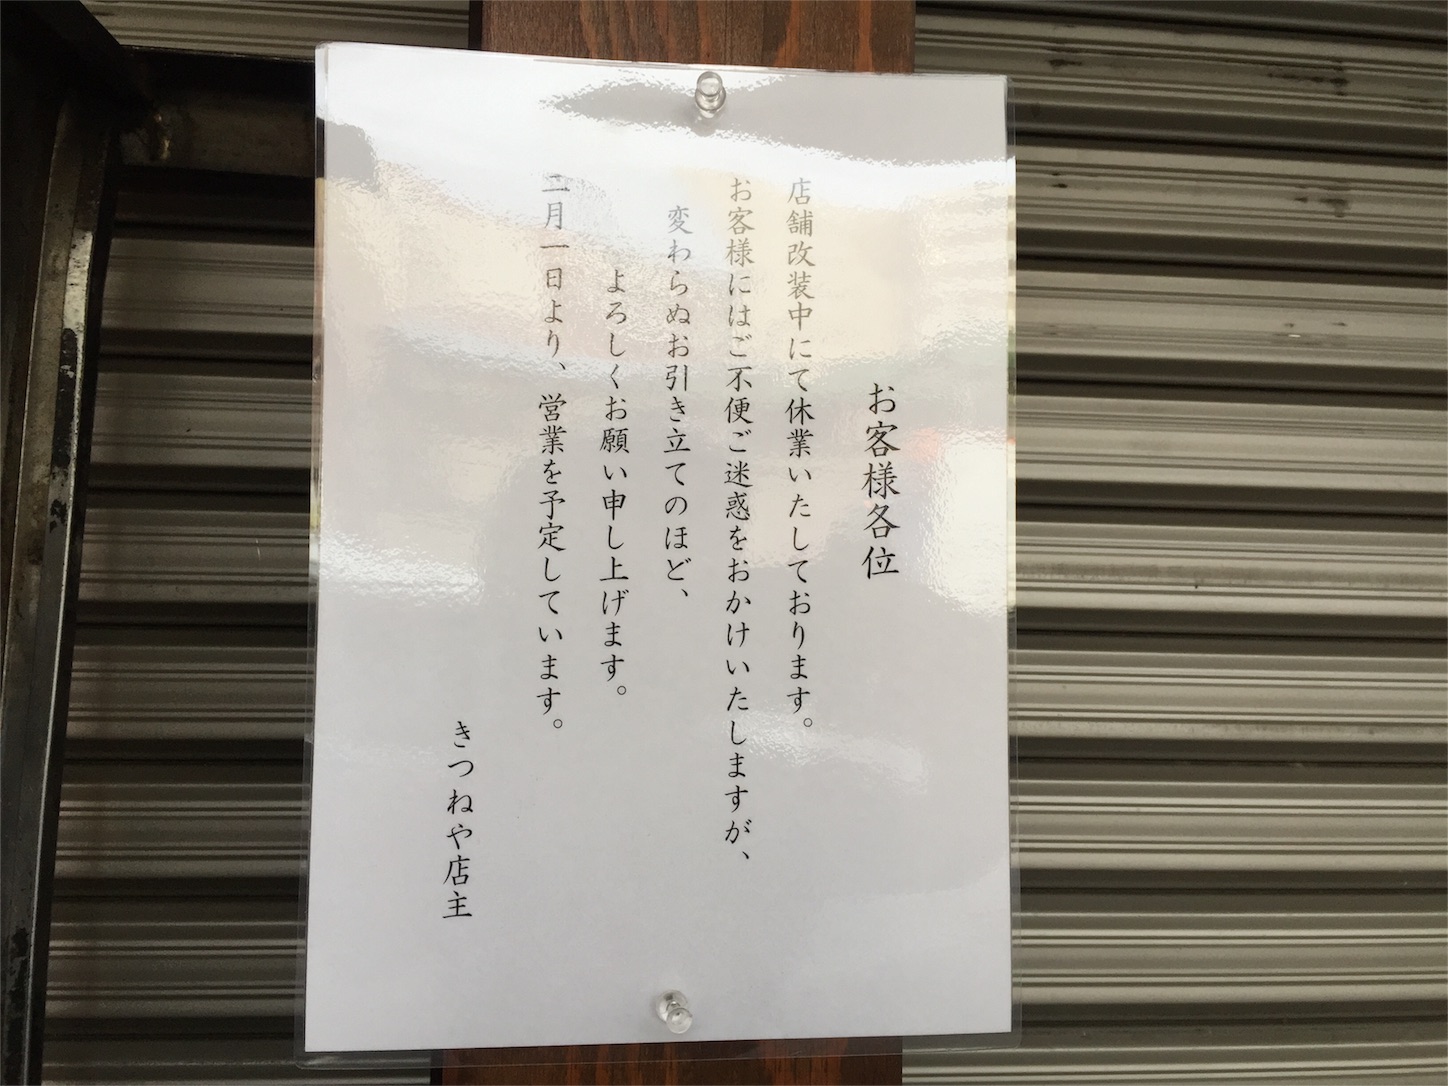 お客様各位
店舗改装中にて休業いたしております。
お客様にはご不便ご迷惑をおかけいたしますが、
変わらぬお引き立てのほど、
よろしくお願い申し上げます。
二月一日より、営業を予定しています。
きつねや店主